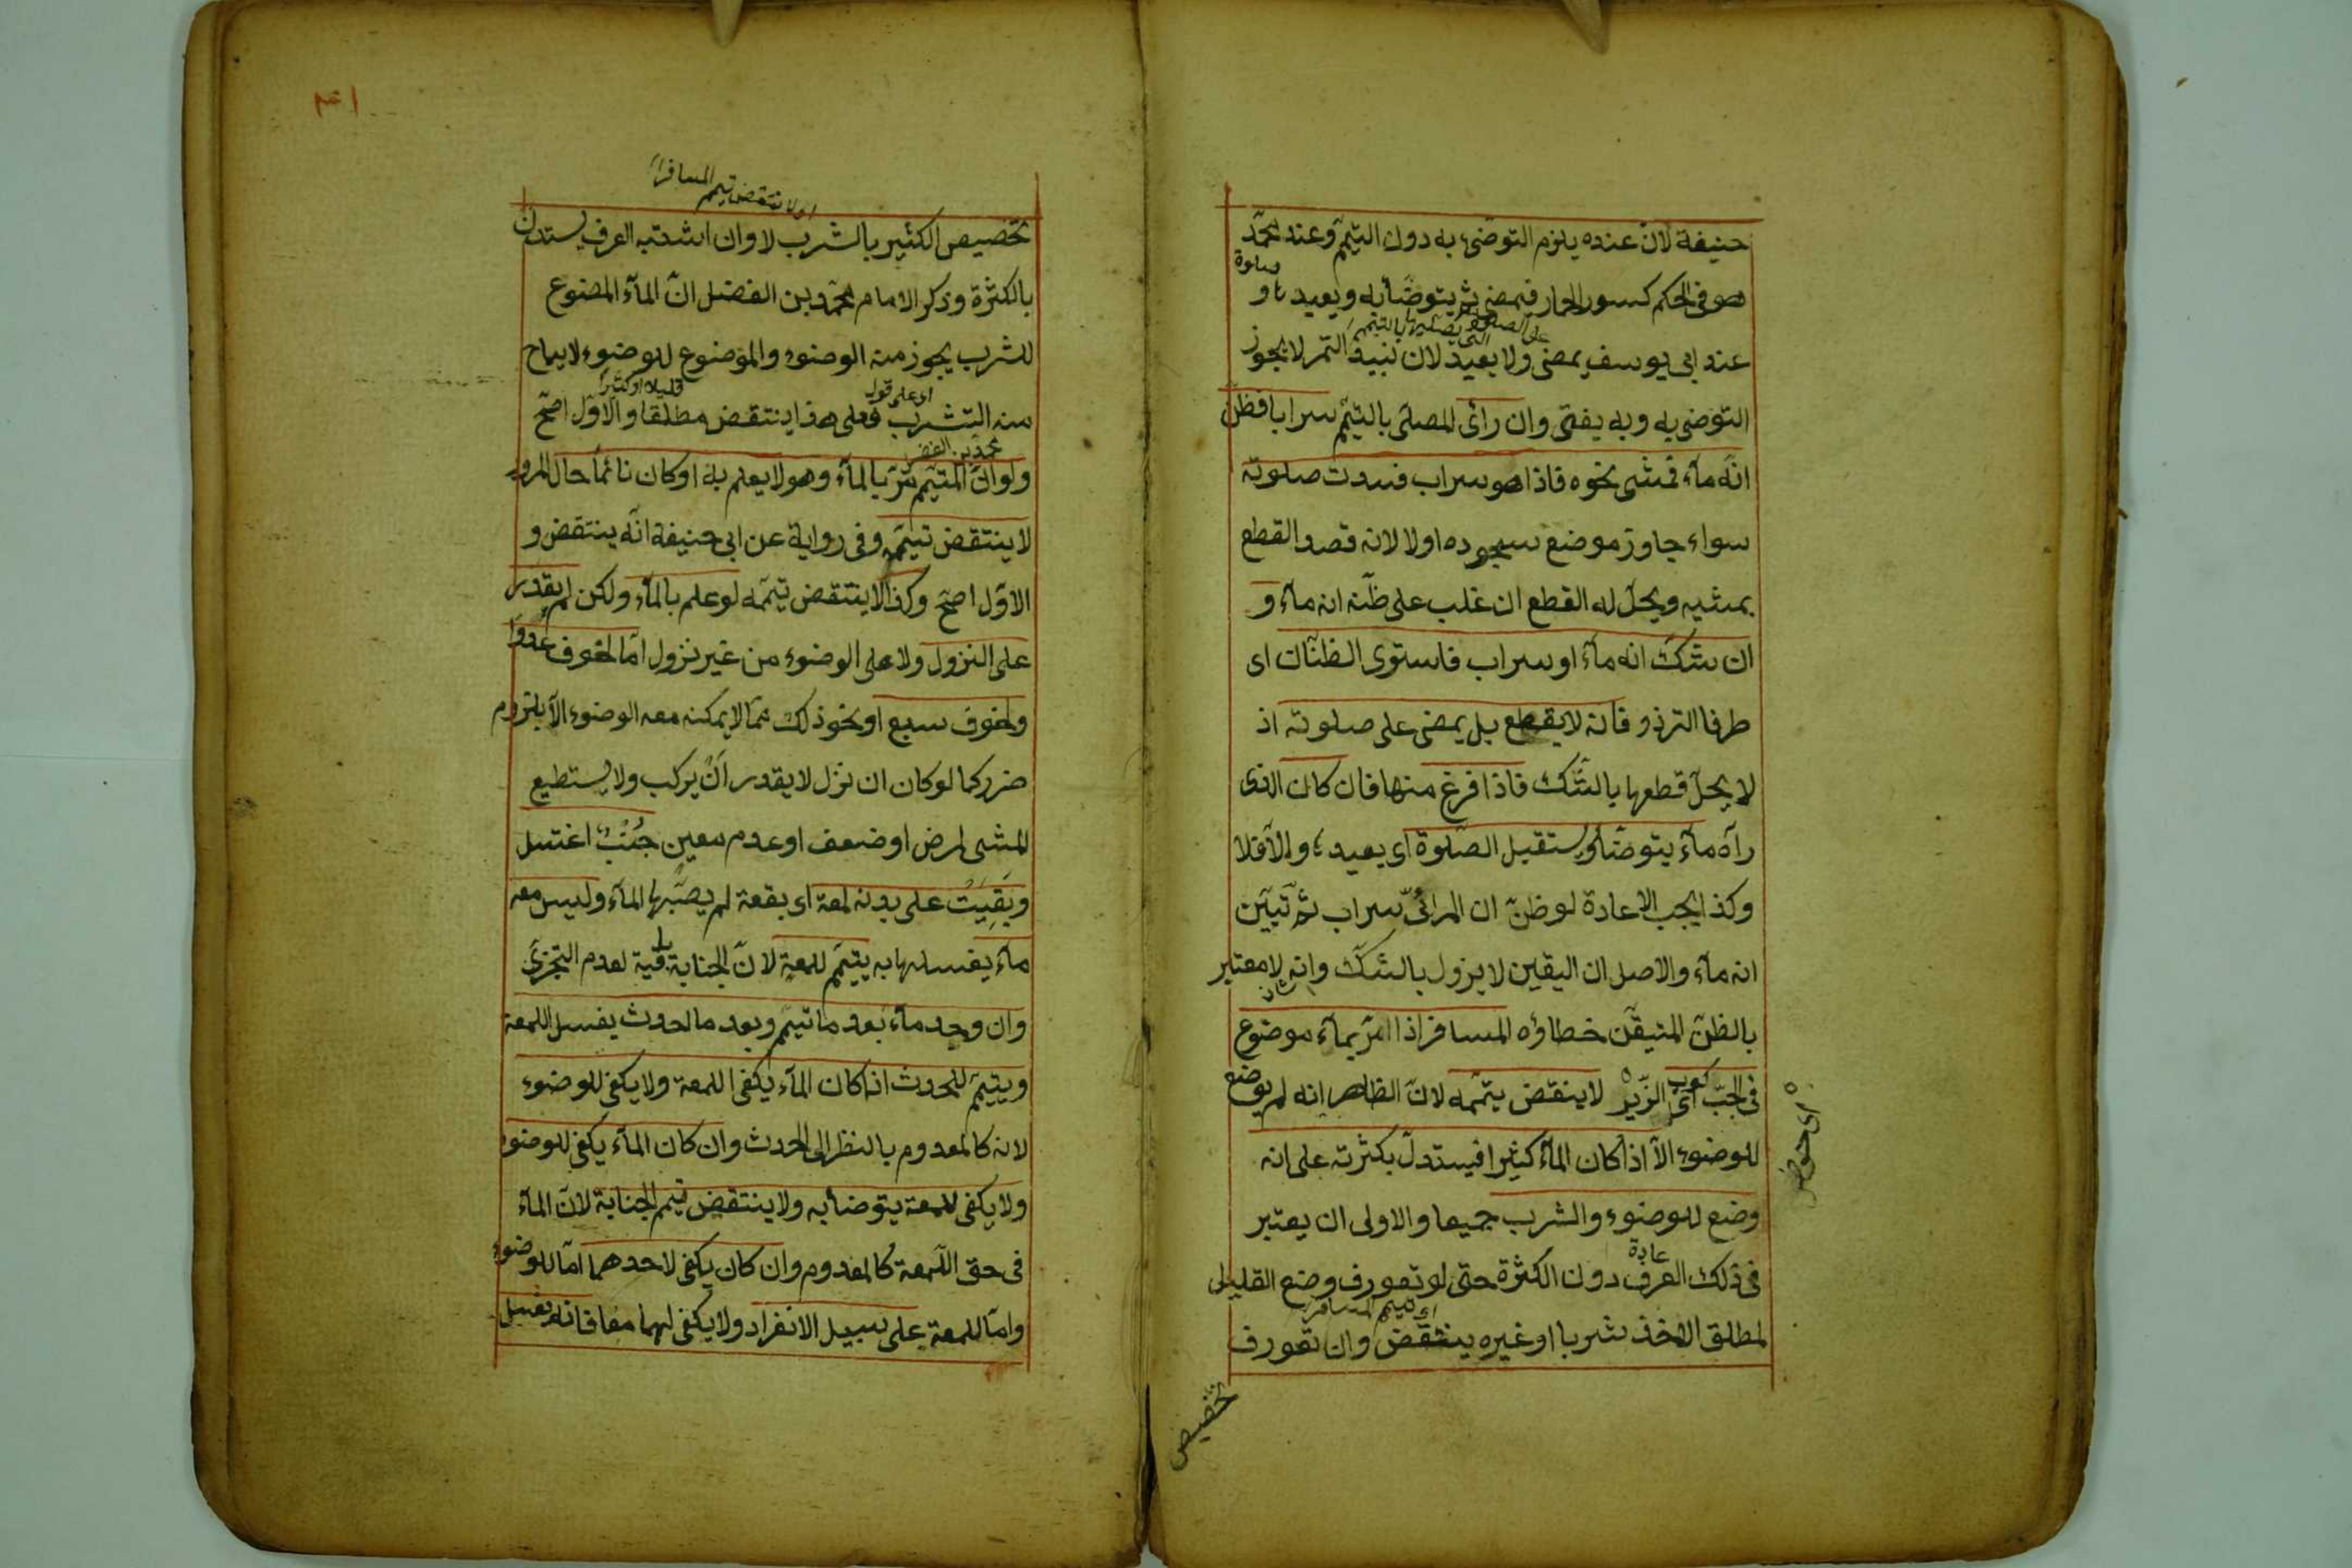 حنيفة لانّ عنده يلزم التوضئ به دون التيمّم وعند محمّد
صلوة
هو في الحكم كسور الحمار فيمضى ثم يتوضّأ به ويعيدها و
على الصلوة التى يصليها بالتيمم
عند ابى يوسف يمضى ولا يعيد لان نبيذ التمر لا يجوز
التوضى به وبه يفتى وان رأى المصلّى بالتيمّم سرابا فظنّ
انّه مآء فمشى نحوه فاذا هو سراب فسدت صلوته
سواء جاوز موضع سجوده اولا لانه قصد القطع
بمشيه ويحلّ له القطع ان غلب على ظنّه انه مآء و
ان شكّ انه مآء او سراب فاستوى الظنّان اى
طرفا التردّد فانه لا يقطع بل يمضى على صلوته اذ
لا يحلّ قطعها بالشّك فاذا فرغ منها فان كان الذى
رآه مآء يتوضّأ ويستقبل الصّلوة اى يعيدها والّا فلا
وكذا يجب الاعادة لو ظنّ ان المرائىّ سراب ثمّ تبيّن
انه مآء والاصل ان اليقين لا يزول بالشّك وانه لا معتبر
بالظنّ المتيقّن خطاؤه المسافر اذا مرّ بمآء موضوع
كوب
فى الجبّ اى الزّير لا ينقض تيمّمه لانّ الظاهر انه لم يوضع
للوضوء الّا اذا كان المآء كثيرا فيستدلّ بكثرته على انه
وضع للوضوء والشرب جميعا والاولى ان يعتبر
عادة
فى ذلك العرف دون الكثرة حتى لو تعورف وضع القليل
اى تيمم المسافر
لمطلق الاخذ شربا او غيره ينتقض وان تعورف
تخصيص
٤١
اى لا ينتقض تيمم المسافر
تخصيص الكثير بالشرب لا وان اشتبه العرف يستدلّ
بالكثرة وذكر الامام محمّد بن الفضل انّ المآء الموضوع
للشرب يجوز منه الوضوء والموضوع للوضوء لا يباح
اى على قول قليلا او كثيرا
منه الشرب فعلى هذا ينتقض مطلقا والاوّل اصحّ
محمد بن الفضل
ولو انّ المتيمّم مرّ بالمآء وهو لا يعلم به او كان نائما حال المرور
لا ينتقض تيمّمه وفى رواية عن ابى حنيفة انّه ينتقض و
الاوّل اصحّ وكذا لا ينتقض تيمّمه لو علم بالمآء ولكن لم يقدر
على النزول ولا على الوضوء من غير نزول امّا لخوف عدوّ
ولخوف سبع او نحو ذلك ممّا لا يمكنه معه الوضوء الّا بلزوم
ضرر كما لو كان ان نزل لا يقدر انْ يركب ولا يستطيع
المشى لمرض او ضعف او عدم معين جُنُبٌ اغتسل
وبَقِيَتْ على بدنه لمعة اى بقعة لم يصبها المآء وليس معه
مآء يغسلها به يتيمّم للمعة لانّ الجنابة باقية لعدم التجزّى
وان وجد مآء بعد ما تيمّم وبعد ما احدث يغسل اللمعة
ويتيمّم للحدث اذا كان المآء يكفى اللمعة ولا يكفى للوضوء
لانه كالمعدوم بالنظر الى الحدث وان كان المآء يكفى للوضوء
ولا يكفى للمعة يتوضأ به ولا ينتقض تيمم الجنابة لانّ المآء
فى حق اللّمعة كالمعدوم وان كان يكفى لاحدهما امّا للوضوء
وامّا للمعة على سبيل الانفراد ولا يكفى لهما معا فانه يغسل